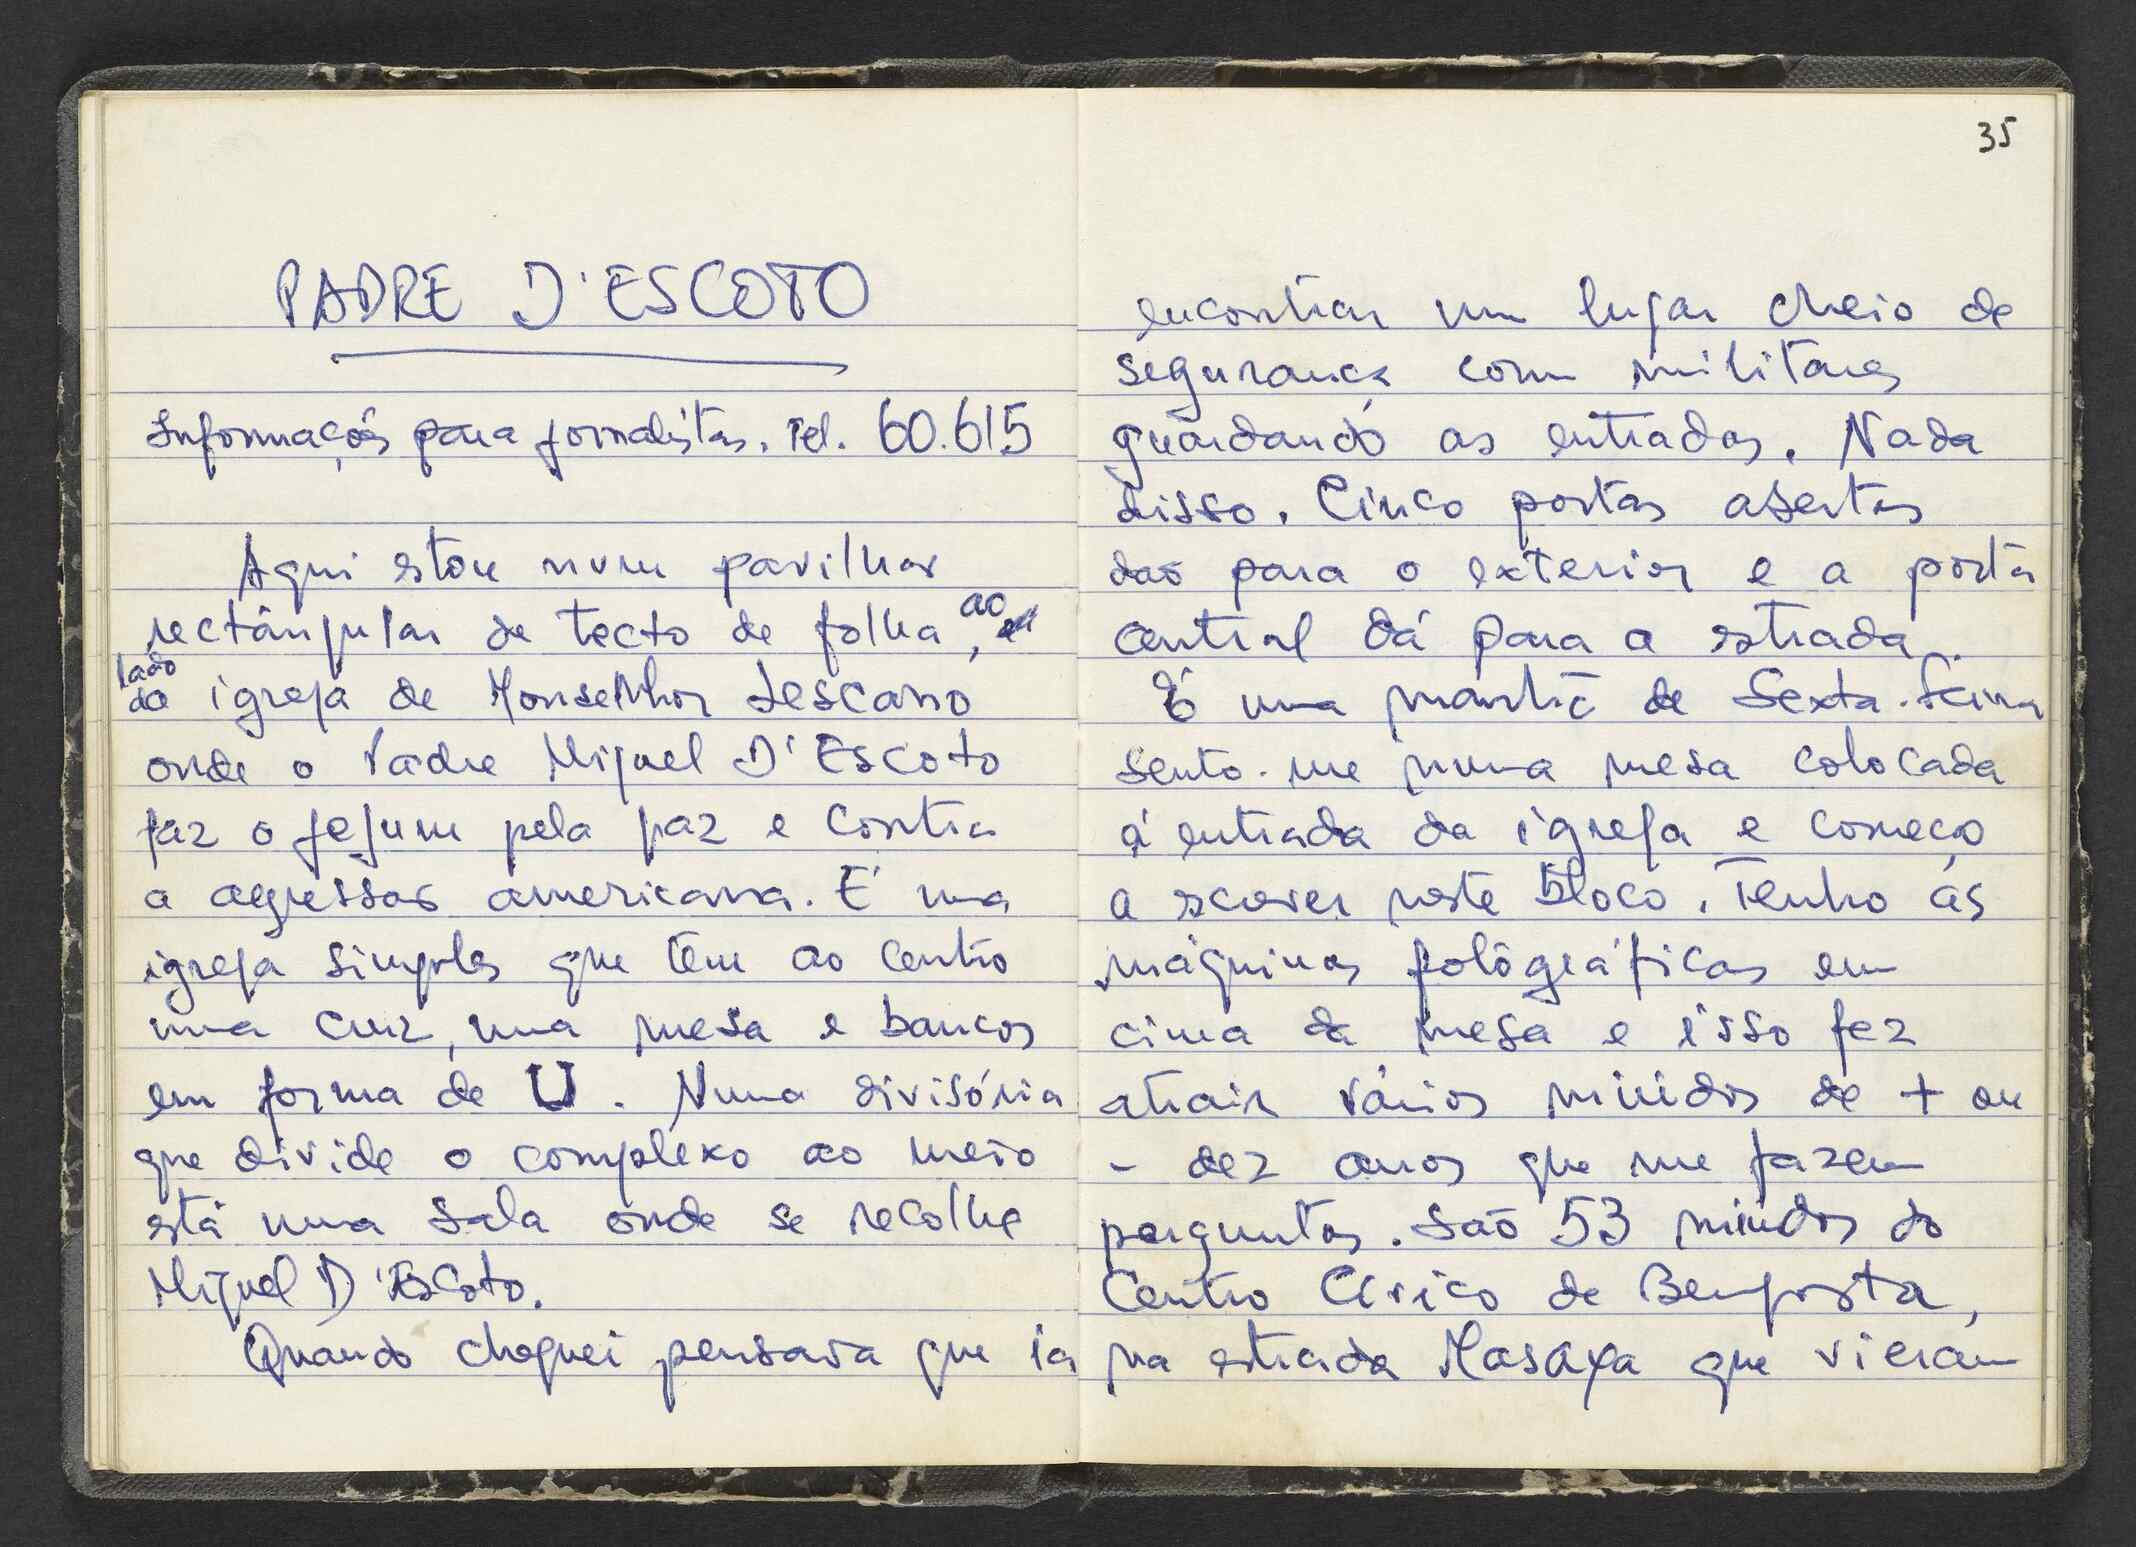 PADRE D'ESCOTO
Informações para jornalistas. Tel. 60.615
Aqui estou num pavilhão
rectângular de tecto de folha, ao
lado
da igreja de Monsenhor Lescano
onde o Padre Miguel D'Escoto
faz o jejum pela paz e contra
a agressão americana. É uma
igreja simples que tem ao centro
uma cruz, uma mesa e bancos
em forma de U. Numa divisória
que divide o complexo ao meio
está uma sala onde se recolhe
Miguel D'Escoto.
Quando cheguei pensava que ia
35
encontrar um lugar cheio de
segurança com militares
guardando as entradas. Nada
disso. Cinco portas abertas
dão para o exterior e a porta
central dá para a estrada.
É uma manhã de Sexta-feira
sento-me numa mesa colocada
à entrada da igreja e começo
a escrever neste bloco. Tenho as
máquinas fotográficas em
cima da mesa e isso fez
atrair vários miúdos de + ou
- dez anos que me fazem
perguntas. São 53 miúdos do
Centro Civico de Benposta,
na estrada Masaya que vieram